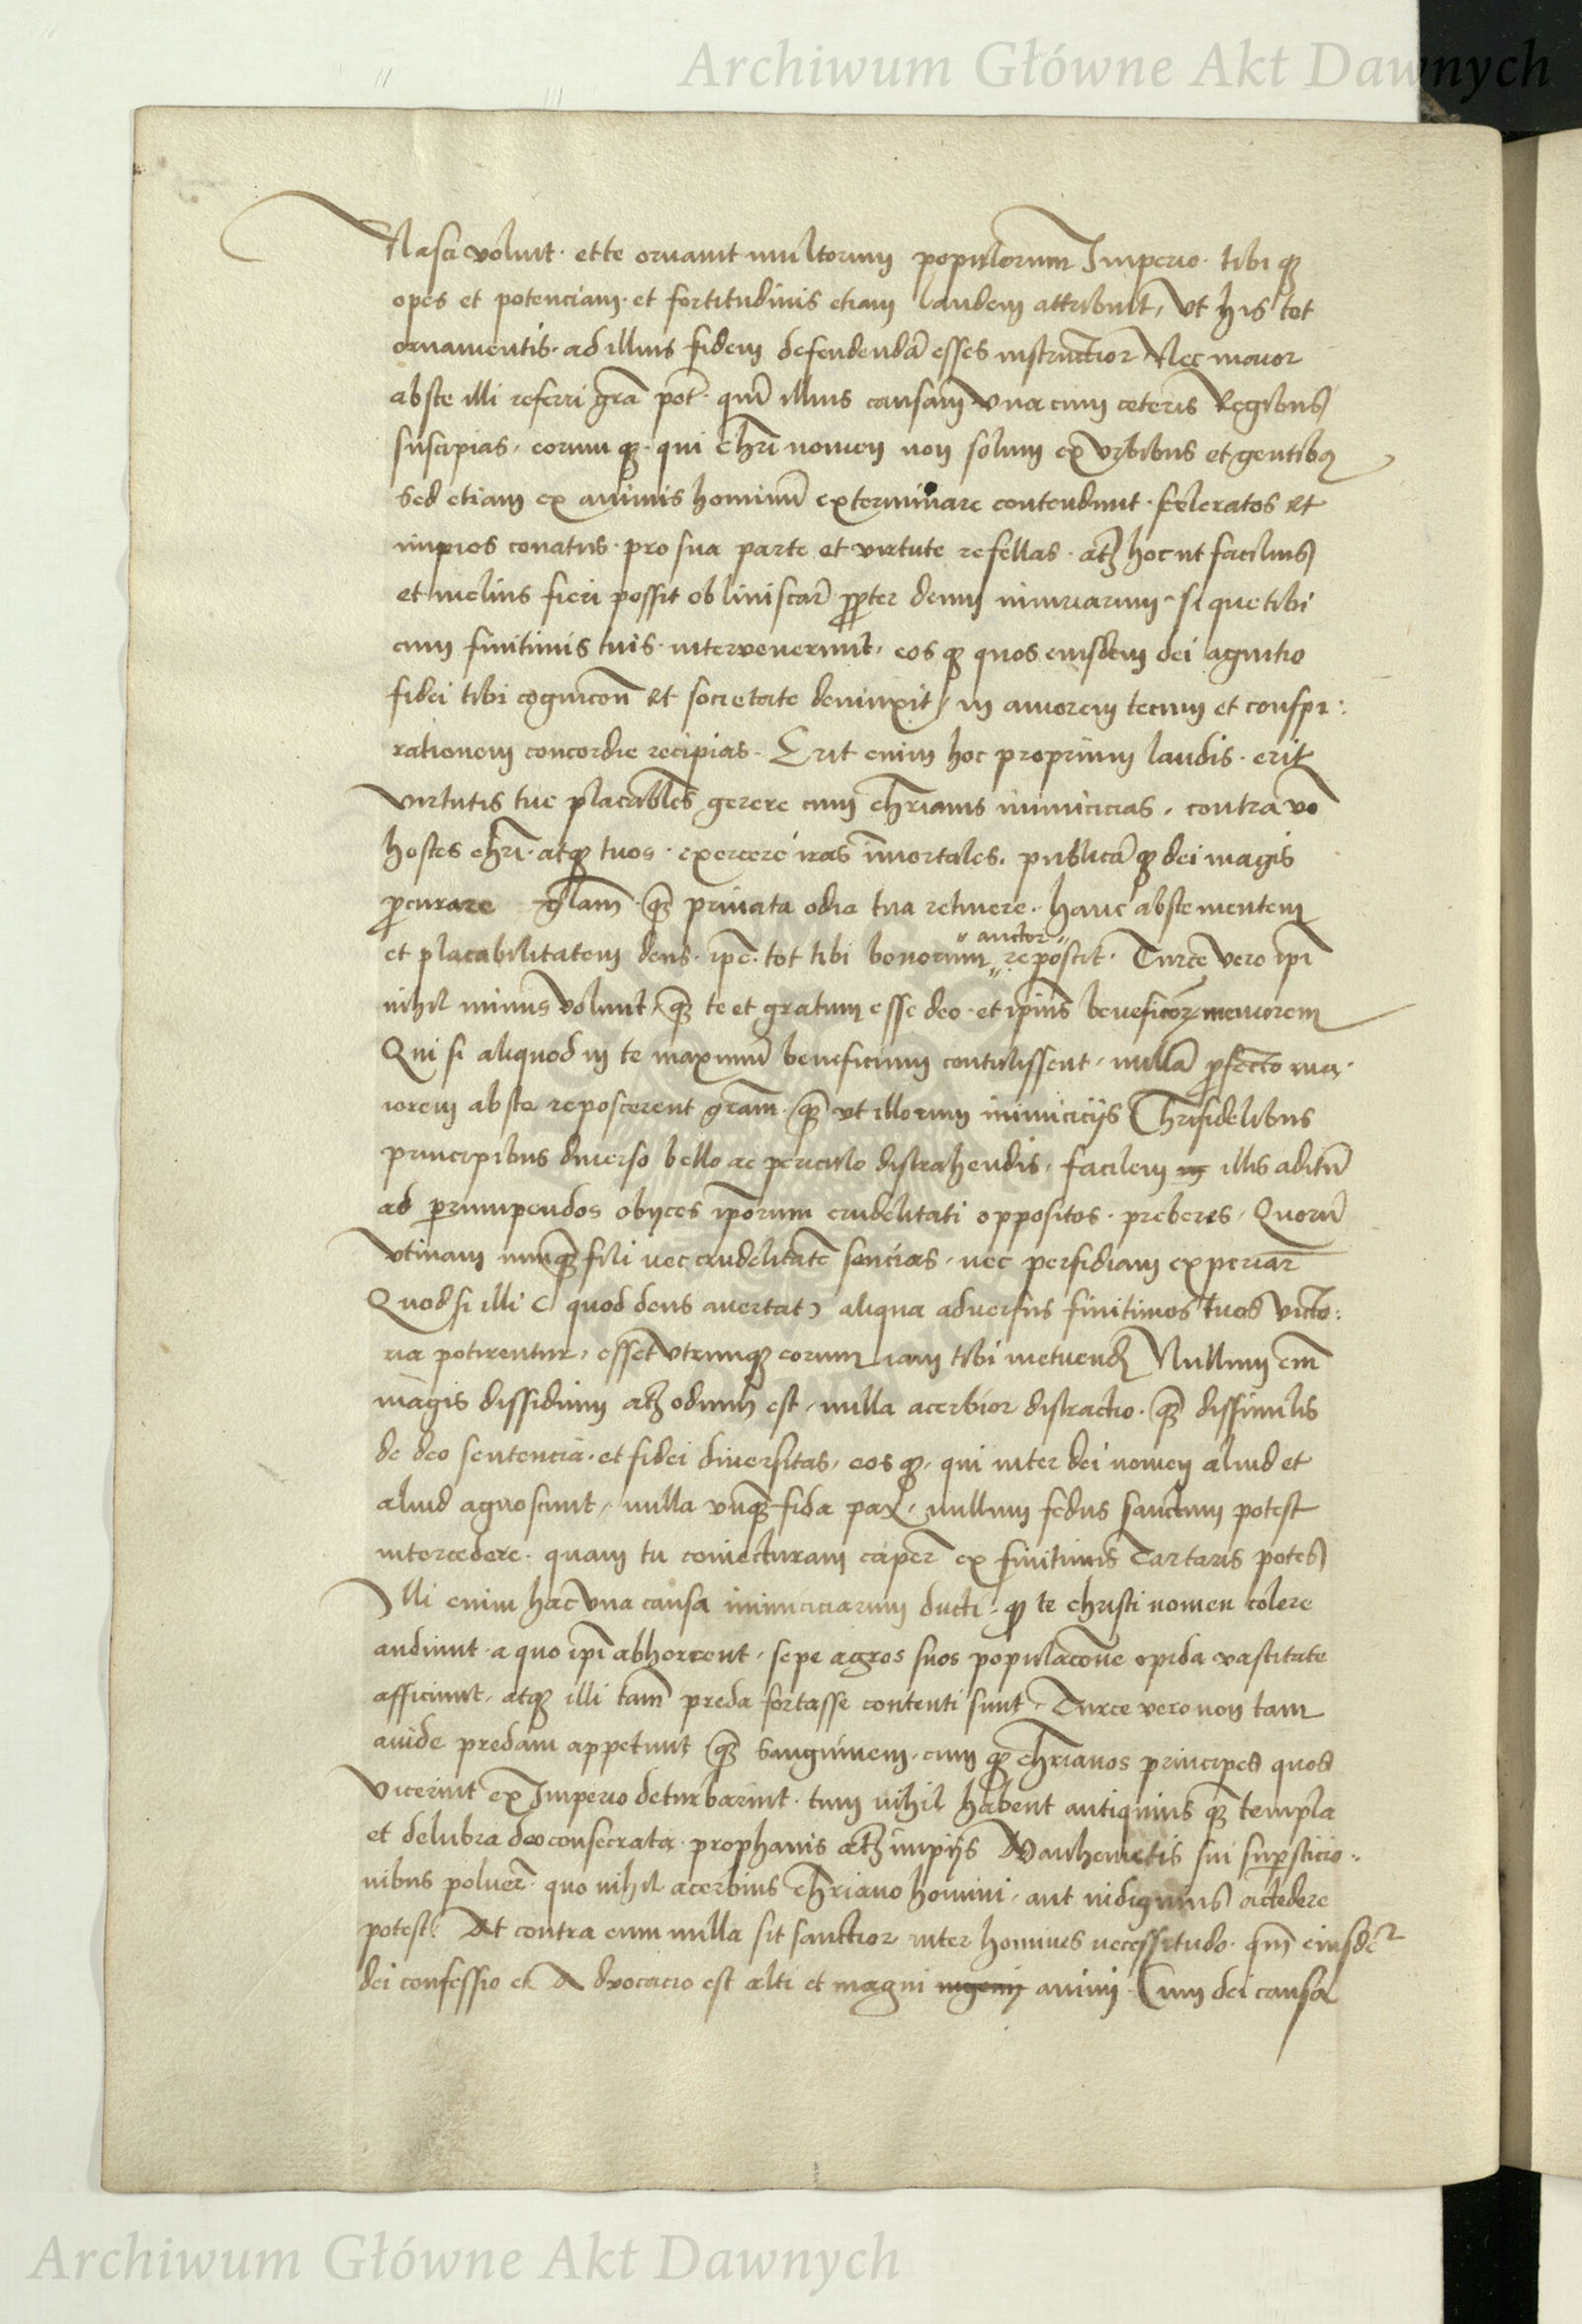 Archiwum Główne Akt Dawnych
Nasci voluit · et te ornavit multorum populorum Imperio · tibi q3
opes et potenciam · et fortitudinis etiam laudem attribuit, Vt his tot
ornamentis · ad illius fidem defendendā esses instructior Nec maior
abste illi referri grā pot̄ · quā illius causam Vna cum ceteris Regibus
suscipias, eorum q3 · qui chri nomen non solum ex Vrbibus et gentib9
Sed etiam ex animis hominū exterminare contendunt · sceleratos et
impios conatus · pro sua parte et virtute refellas · at3 hoc ut facilius
et melius fieri possit obliniscar̄ ppter deum iniuriarum · si que tibi
cum finitimis tuis · intervenerunt, eos q3 quos eiusdem dei agnitio
fidei tibi cognicōn et societate deuinxit, in amorem tecum et conspi:
rationem concordie recipias · Erit enim hoc proprium laudis · erit
Virtutis tue placabiles gerere cum chrianis inimicicias, contra vo
hostes chri · atq3 tuos · exercere iras īmortales, publicā q3 dei magis
pcurare glam · q3 privata odia tua retinere · hanc abste mentem
et placabilitatem deus · ipē · tot tibi bonorum " auctor " reposcit · Turce vero ipi
nihil minus Volunt, q3 te et gratum esse deo · et ipius beneficor memorem
Qui si aliquod in te maximū beneficium contulissent, nullā pfecto ma·
iorem abste reposcerent gram · q3 vt illorum inimicicijs Chrifidelibus
principibus diuerso bello ac periculo distrahendis, facilem illis aditū
ad prumpendos obijces ipōrum crudelitati oppositos · preberes, Quorū
Vtinam nunq3 fili nec crudelitatē sencias, nec perfidiam experiar̄
Quod si illi ( quod deus avertat ) aliqua adversus finitimos tuos victo:
ria potirentur, esset Vtrunq3 eorum iam tibi metuend Nullum em̄
magis dissidium at3 odium est, nulla acerbior distractio · q3 dissimilis
de deo sentencia · et fidei diuersitas, eos q3, qui inter dei nomen aliud et
aliud agnoscunt, nulla vnq3 fida pax, nullum fedus sanctum potest
intercedere · quam tu coniecturam caper̄ ex finitimis Tartaris potes
Illi enim hac Vna causa inimiciciarum ducti · q3 te christi nomen colere
audiunt · a quo ipi abhorrent, sepe agros suos populacōne opida vastitate
afficiunt, atq3 illi tam̄ preda fortasse contenti sunt, Turce vero non tam
auide predam appetunt q3 sanguinem, cum q3 chrianos principes quos
Vicerint ex Imperio deturbarint · tum nihil habent antiquius q3 templa
et delubra deo consecrata · prophanis at3 impijs Mauhemetis sui supsticio:
nibus poluer̄ · quo nihil acerbius chriano homini, aut indignius accedere
potest At contra cum nulla sit sanctior inter homines necessitudo · qm̄ eiusdē
dei confessio et Advocacio est alti et magni animi · Cum dei causa
Archiwum Główne Akt Dawnych